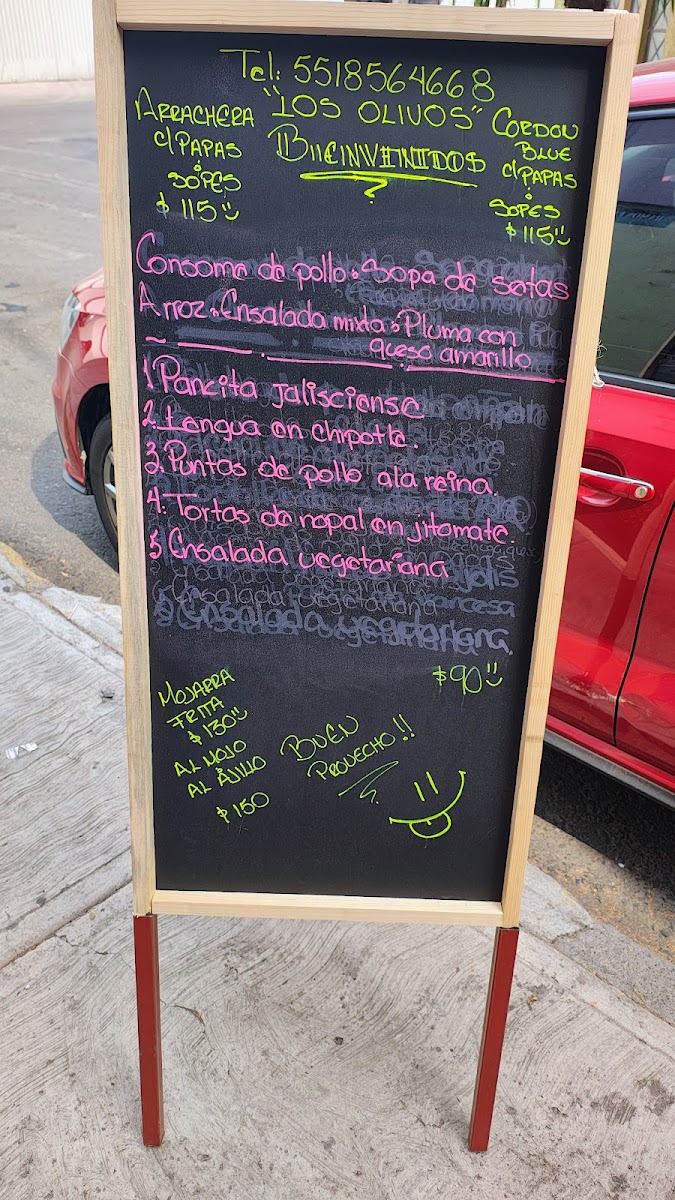 Tel: 5518564668
"LOS OLIVOS"
BIENVENIDOS
ARRACHERA
c/PAPAS
ó
SOPES
$115
CORDON
BLUE
c/PAPAS
ó
SOPES
$115
Consome de pollo • Sopa de setas
Arroz • Ensalada mixta • Pluma con
queso amarillo
1 Pancita jalisciense
2. Lengua en chipotle.
3. Puntas de pollo ala reina.
4. Tortas de nopal en jitomate.
5 Ensalada vegetariana
Ensalada vegetariana
Ensalada vegetariana.
$90
MOJARRA
FRITA
$130
AL MOJO
ó
AL AJILLO
$150
BUEN
PROVECHO!!